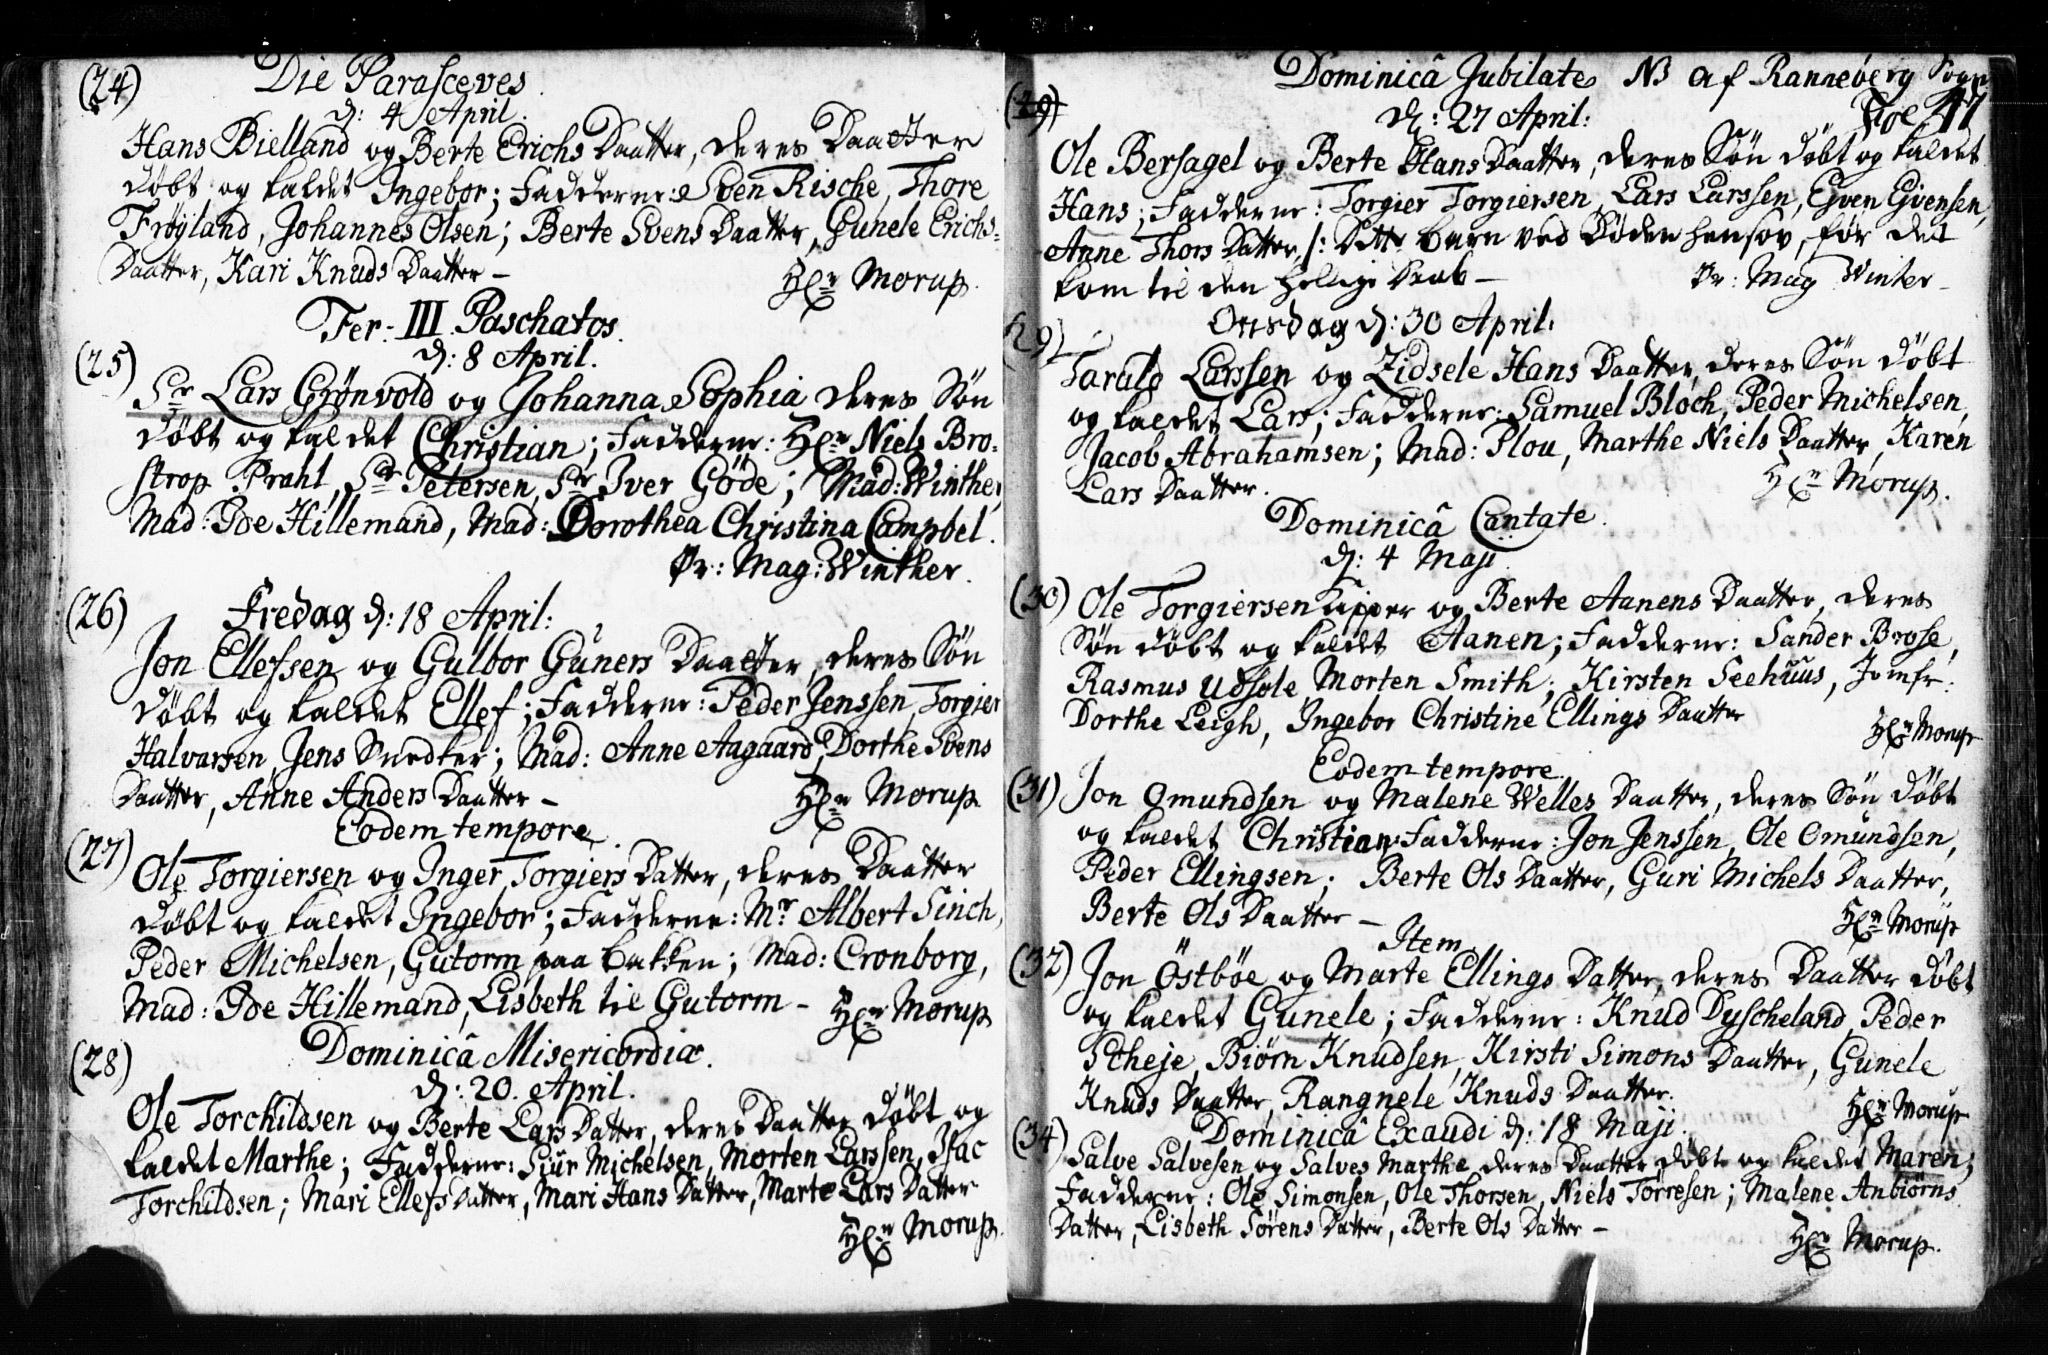 (24) Die Parasceves
d: 4 April.
Hans Bielland og Berte Erichs Daatter, deres Daatter
døbt og kaldet Ingebor; Fadderne: Sven Rische, Thore
Frøyland, Johannes Olsen; Berte Svens Daatter, Gunele Erichs-
Daatter, Kari Knuds Daatter – Hr Morup.
Fer: III. Paschatos.
d: 8 April.
(25)
Sr Lars Grønvold og Johanna Sophia deres Søn
døbt og kaldet Christian; Fadderne: Hr Niels Bro-
strop Prahl, Sr Petersen, Sr Iver Göde; Mad: Winther,
Mad: Hillemand, Mad: Dorothea Christina Campbel.
Pr: Mag: Winther.
(26) Fredag d: 18 April:
Jon Ellefssen og Gulbor Guners Daatter, deres Søn
døbt og kaldet Ellef; Fadderne: Peder Jenssen, Torgier
Halvarsen, Jens Snedker; Mad: Anne Aagaard, Dorthe Svens
Daatter, Anne Anders Daatter – Hr Morup
Eodem tempore.
(27)
Ole Torgiersen og Inger Torgiers Datter, deres Daatter
døbt og kaldet Ingebor; Fadderne: Mr Albert Sinch,
Peder Michelsen, Gutorm paa Bakken; Mad: Cronborg,
Mad: Hillemand, Lisbeth til Gutorm – Hr Morup
Dominicâ Misericordiæ.
(28)
d: 20. April.
Ole Torchildsen og Berte Lars Datter, deres Daatter døbt og
kaldet Marthe; Fadderne: Siur Michelsen, Morten Larssen, Isac
Torchildsen; Mari Ellefs Datter, Mari Hans Datter, Marte Lars Datter
Hr Morup.
Dominicâ Jubilate NB af Rannebergs Sogn
(29) d: 27 April: 47
Ole Bersagel og Berte Hans Daatter, deres Søn døbt og kaldet
Hans; Fadderne: Torgier Torgiersen, Lars Larssen, Ejven Ejvensen,
Anne Thors Datter, /: Dette barn ved Døden hensov, før det
kom til den hellige Daab – Pr: Mag Winter –
Onsdag d: 30 April:
29)
Taruld Larssen og Zidsele Hans Daatter, deres Søn døbt
og kaldet Lars; Fadderne: Samuel Bloch, Peder Michelsen,
Jacob Abrahamsen; Mad: Plou, Marthe Niels Daatter, Karen
Lars Daatter. Hr Morup.
Dominicâ Cantate.
d: 4 Maji.
(30) Ole Torgiersen og Berte Aanens Daatter, deres
Søn døbt og kaldet Aanen; Fadderne: Sander Brose,
Rasmus Udsole, Morten Smith; Kirsten Seehuus, Jomfr:
Dorthe Leigh, Ingebor Christine Ellings Daatter Hr Morup
Eodem tempore.
(31) Jon Omundsen og Malene Welles Daatter, deres Søn døbt
og kaldet Christian; Fadderne: Jon Jenssen, Ole Omundsen,
Peder Ellingsen; Berte Ols Daatter, Guri Michels Daatter,
Berte Ols Daatter – Hr Morup
Item
(32) Jon Östböe og Marte Ellings Datter, deres Daatter døbt
og kaldet Gunele; Fadderne: Knud Dyscheland, Peder
Stheje, Biørn Knudsen, Kirsti Simons Daatter, Gunele
Knuds Daatter, Rangnele Knuds Daatter. Hr Morup
Dominicâ Exaudi d: 18 Maji.
(34) Salve Salvesen og Salves Marthe, deres Daatter døbt og kaldet Maren;
Fadderne: Ole Simonsen, Ole Thorsen, Niels Torresen; Malene Anbiørns
Datter, Lisbeth Sørens Datter, Berte Ols Datter –
Hr Morup.